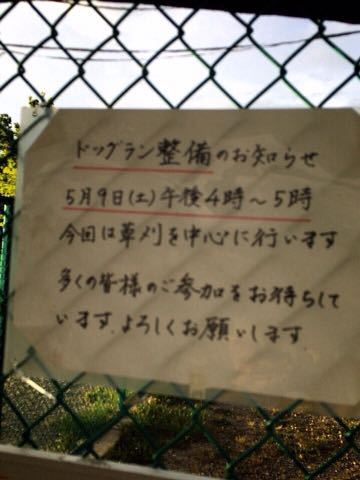 ドッグラン整備のお知らせ
5月9日(土)午後4時〜5時
今回は草刈を中心に行います
多くの皆様のご参加をお待ちして
います.よろしくお願いします